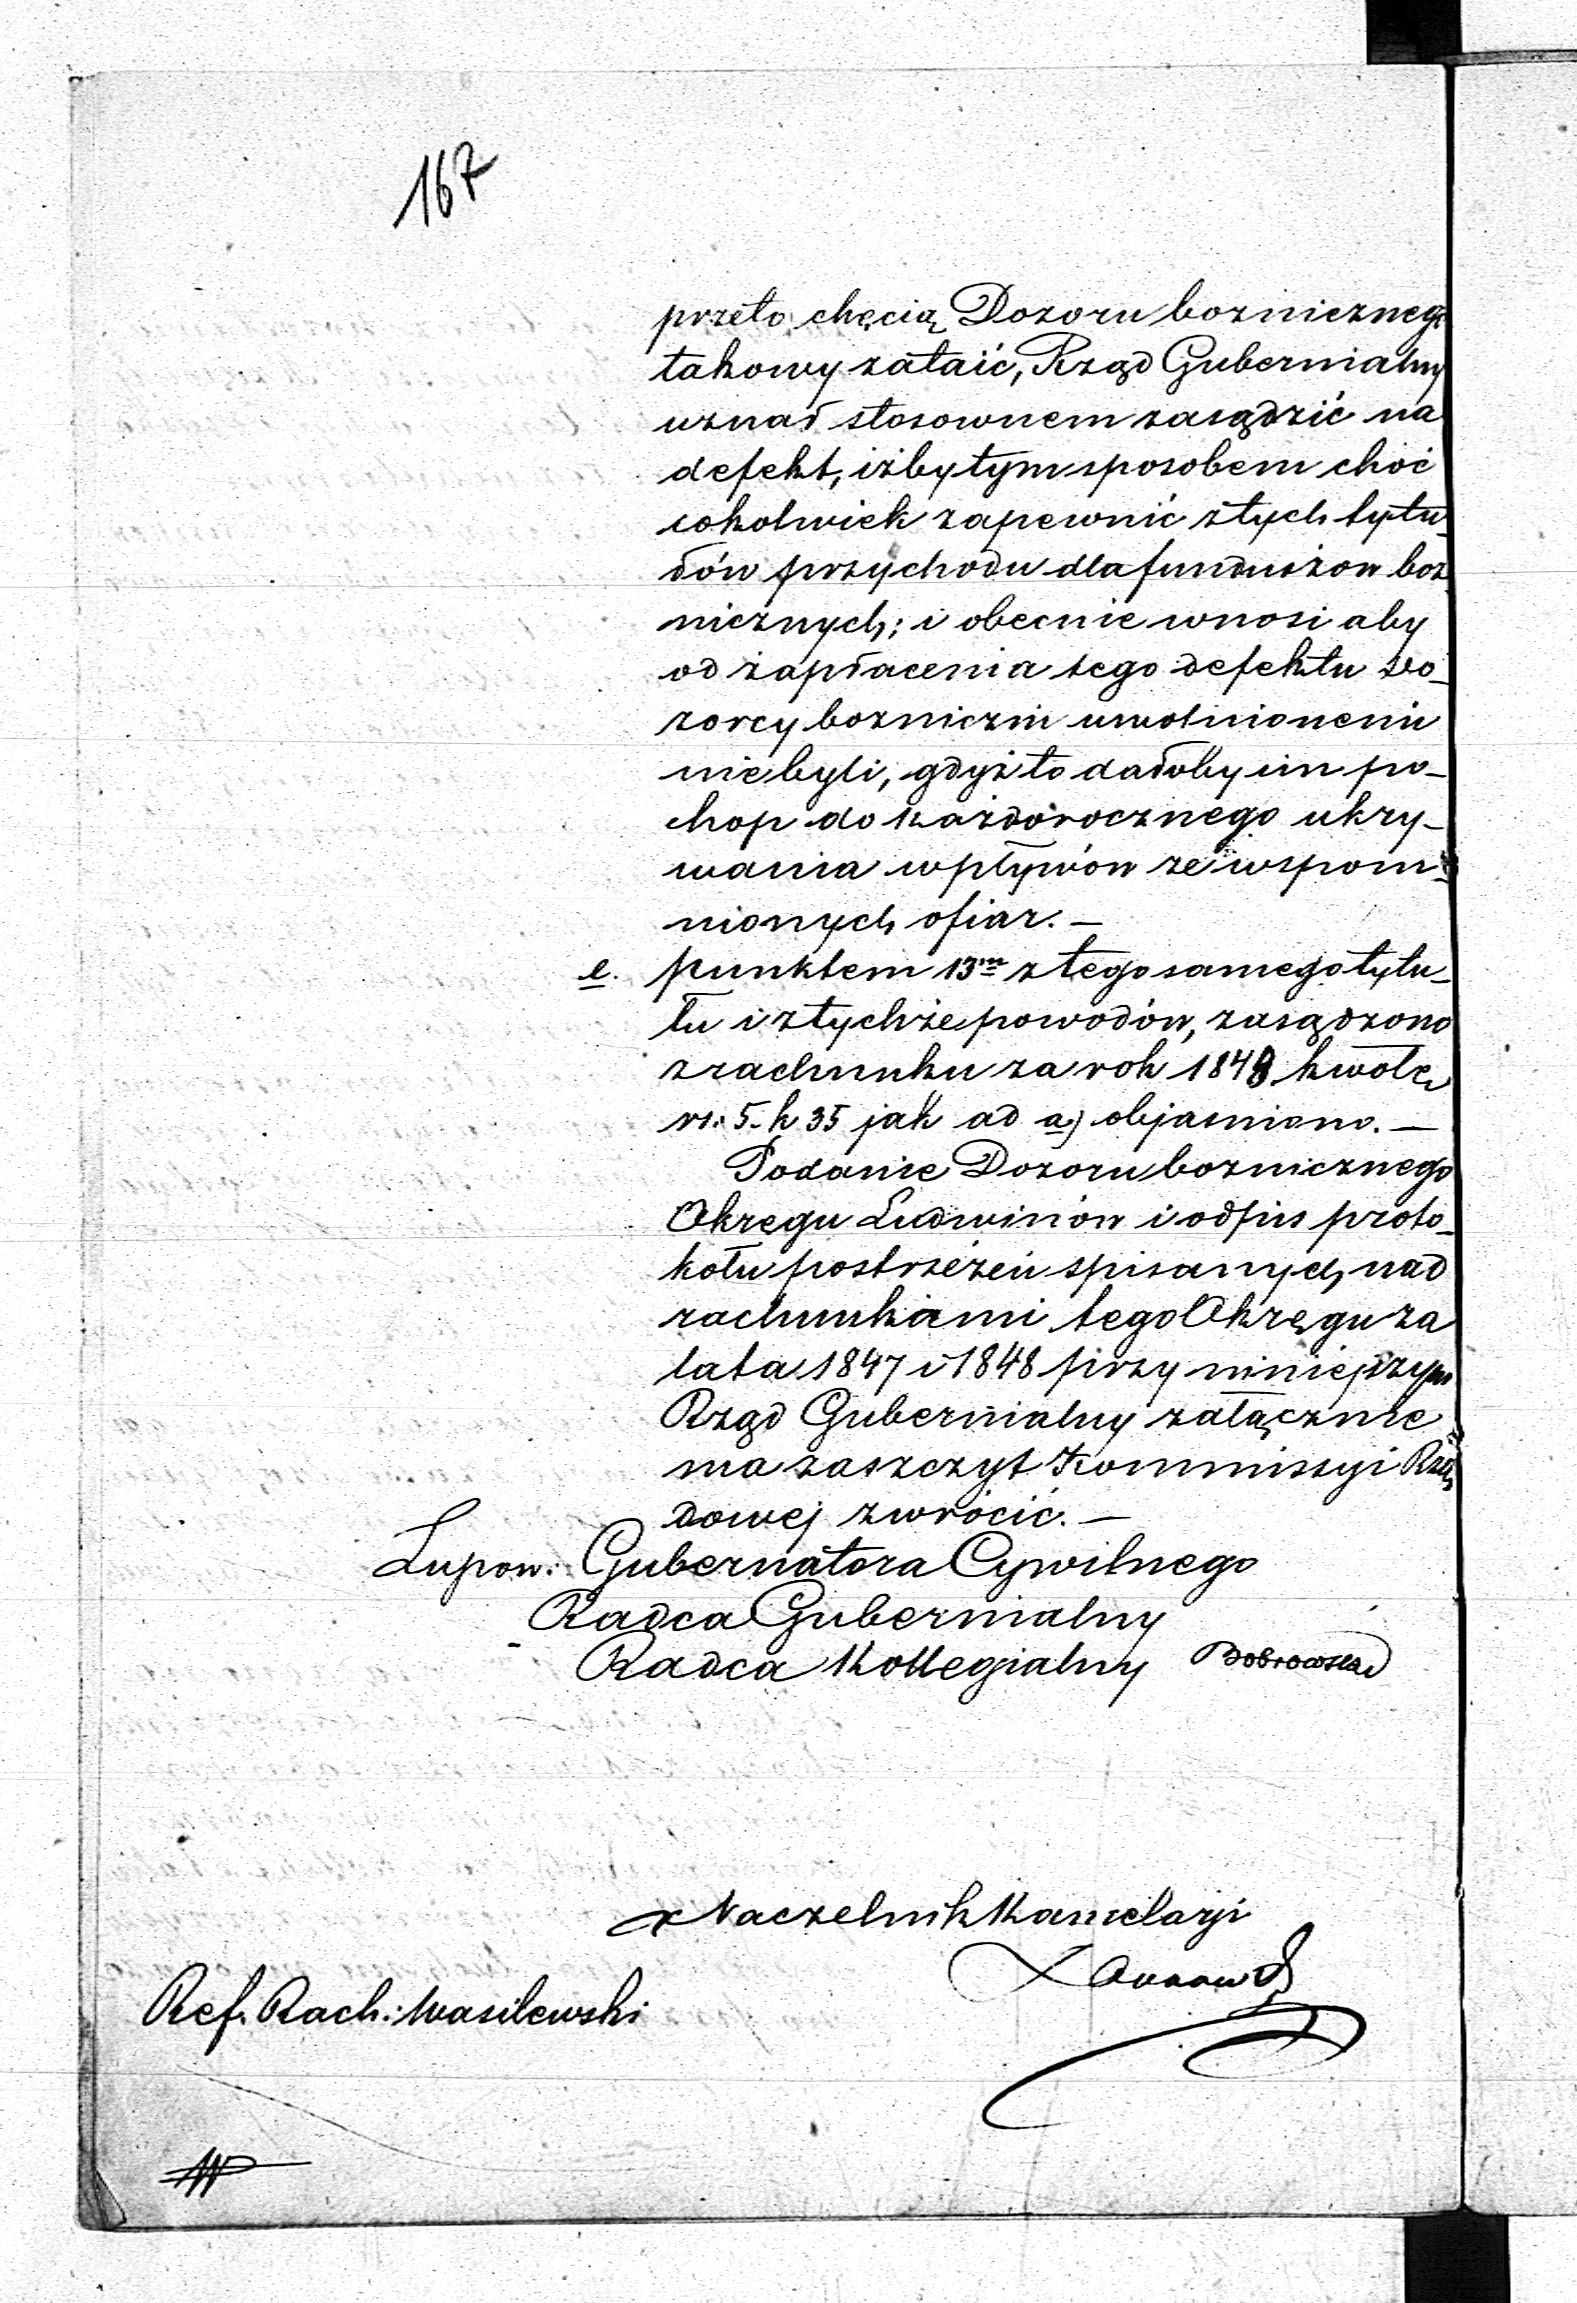 167
przeto chęcią Dozoru bozniczneg
takowy zataić, Rząd Gubernialny
uznał stosownem zasądzić na
defekt, iżby tym sposobem choć
cokolwiek zapewnić z tych tytu_
łów przychodu dla funduszow boz_
nicznych; i obecnie wnosi aby
od zapłacenia tego defektu do_
zorcy bozniczni uwolnionemi
nie byli, gdyż to dałoby im po_
chop do każdorocznego ukry_
wania wpływów ze wspom_
nionych ofiar. —
e. punktem 13m z tego samego tytu_
łu i z tychże powodów, zasądzono
z rachunku za rok 1848 kwotę
rs. 5. k 35 jak ad a) objasniono. —
Podanie Dozoru bozniczego
Okręgu Ludwinów i odpis proto_
kołu postrzeżeń spisanych nad
rachunkami tego Okręgu za
lata 1847 i 1848 przy niniejszym
Rząd Gubernialny załącznie
ma zaszczyt Kommissyi Rzą
dowej zwrócić. —
Z upow. Gubernatora Cywilnego
Radca Gubernialny
Radca Kollegialny
Naczelnik Kancelaryi
Ref. Rach: Wasilewski